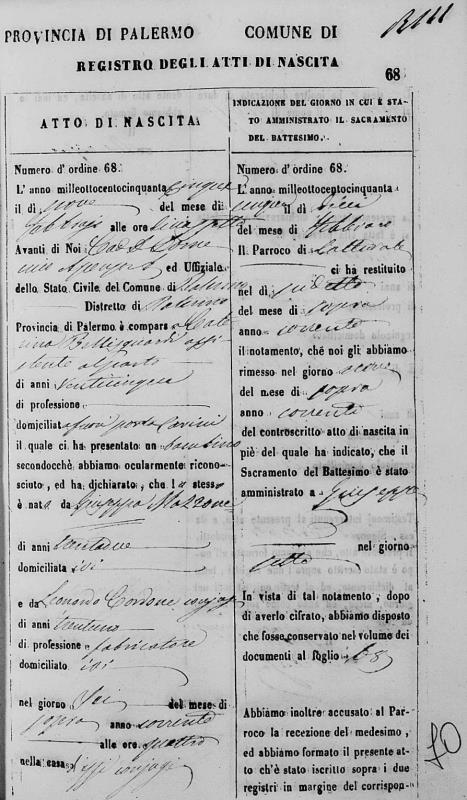 PROVINCIA DI PALERMO COMUNE DI
REGISTRO DEGLI ATTI DI NASCITA
68
ATTO DI NASCITA
Numero d' ordine 68.
L' anno milleottocentocinquanta cinque
il dì nove del mese di
Febbraro alle ore
Avanti di Noi
ed Uffiziale
dello Stato Civile del Comune di Palermo
Distretto di Palermo
Provincia di Palermo è comparsa Cate
rina assi
stente al parto
di anni venticinque
di professione
domiciliata fuori porta Carini
il quale ci ha presentato un bambino
secondocchè abbiamo ocularmente ricono-
sciuto, ed ha dichiarato, che lo stesso
è nato da Giuseppa
di anni trentadue
domiciliata ivi
e da Leonardo Cordone conjugi
di anni trentuno
di professione fabricatore
domiciliato ivi
nel giorno sei del mese di
sopra anno corrente
alle ore quattro
nella casa di essi conjugi
INDICAZIONE DEL GIORNO IN CUI È STA-
TO AMMINISTRATO IL SACRAMENTO
DEL BATTESIMO.
Numero d' ordine 68.
L' anno milleottocentocinquanta
cinque il dì dieci
del mese di Febbraro
Il Parroco di Cattedrale
ci ha restituito
nel dì sudetto
del mese di sopra
anno corrente
il notamento, che noi gli abbiamo
rimesso nel giorno nove
del mese di sopra
anno corrente
del controscritto atto di nascita in
piè del quale ha indicato, che il
Sacramento del Battesimo è stato
amministrato a Giuseppe
nel giorno
In vista di tal notamento, dopo
di averlo cifrato, abbiamo disposto
che fosse conservato nel volume dei
documenti al foglio 68
Abbiamo inoltre accusato al Par-
roco la recezione del medesimo,
ed abbiamo formato il presente at-
to ch'è stato iscritto sopra i due
registri in margine del corrispon-